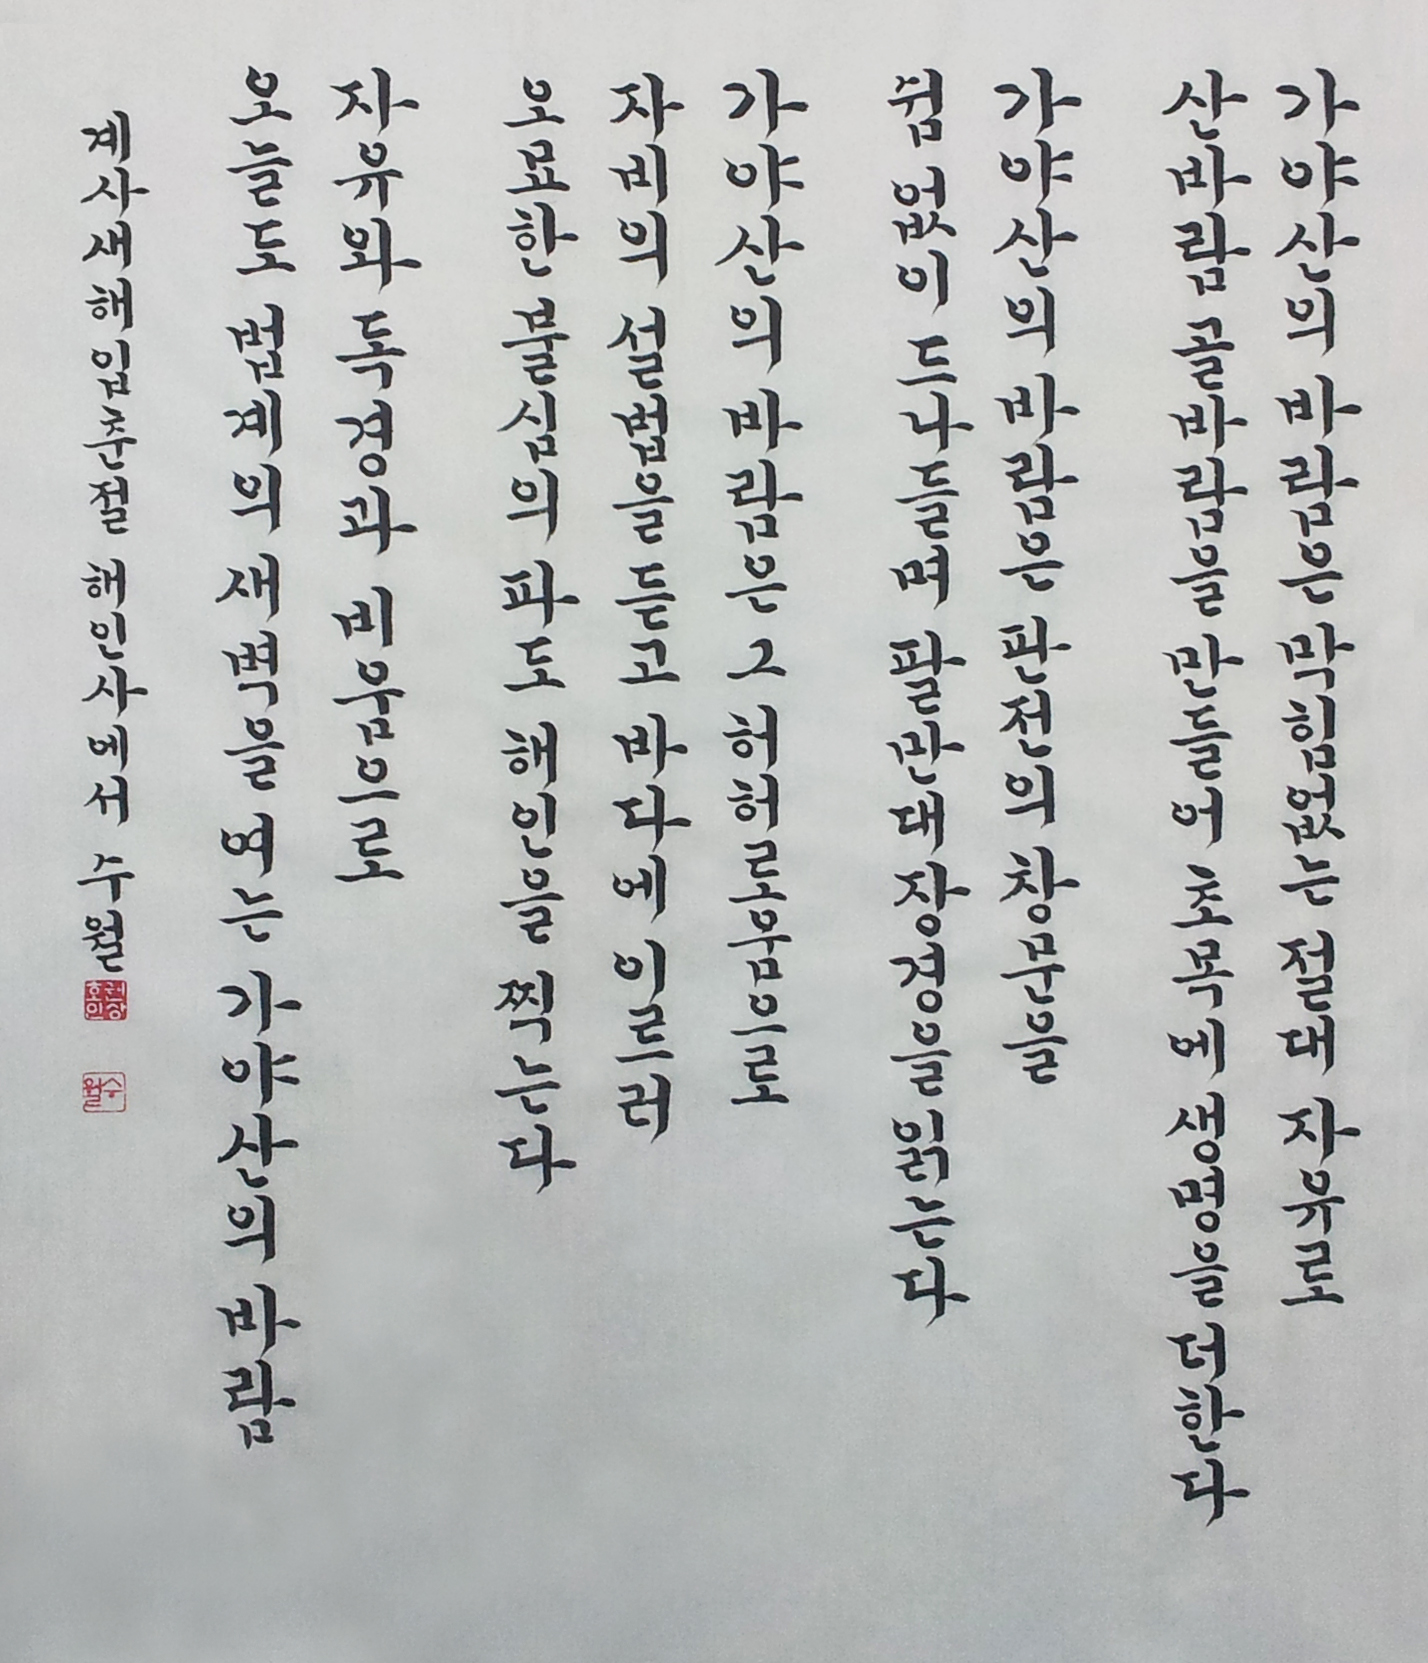 가야산의 바람은 막힘없는 절대 자유로
산바람 골바람을 만들어 초록에 생명을 더한다
가야산의 바람은 판전의 창문을
쉼 없이 드나들며 팔만대장경을 읽는다
가야산의 바람은 그 허허로움이로
자비의 설법을 듣고 바다에 이르러
오묘한 불심의 파도 해인을 찍는다
자유와 독경과 비움이로
오늘도 법계의 새벽을 여는 가야산의 바람
계사새해입춘절 해인사에서 수월
수월